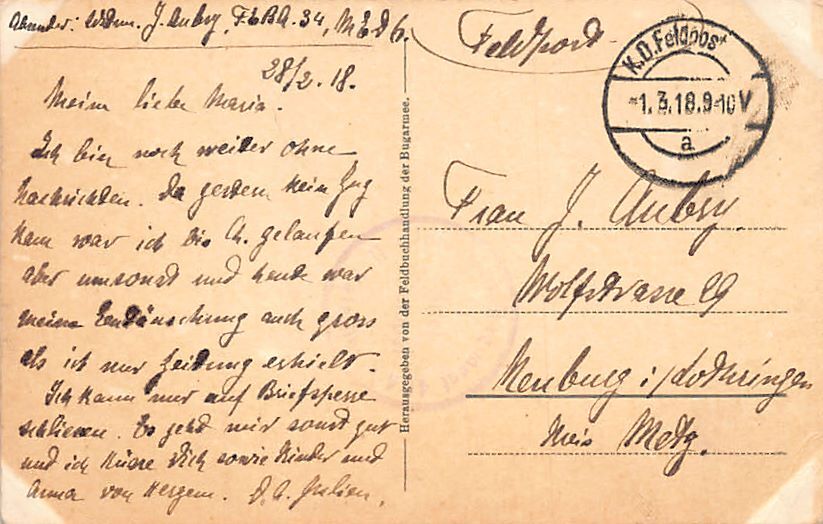 Absender: Ldstm. J. Aubry, F.E.B.A. 34, M.E.D 6.
28/2. 18.
Meine liebe Maria.
Ich bin noch weider ohne
Nachrichden. Da gesdern kein Zug
kam war ich bis Ch. gelaufen
aber umsonsd und heude war
meine Enddäuschung auch gross
als ich nur Zeidung erhield.
Ich kann nur auf Briefsperre
schliesen. Es gehd mir sonsd gud
und ich küsse dich sowie Kinder und
Anna von Herzen. D. A. Julien.
Herausgegeben von der Feldbuchhandlung der Bugarmee.
Feldposd
K.D. Feldpost
-1.3.18.9-10V
a
Frau J. Aubry.
Wolfsdrasse 29
Neuburg i/Lodhringen
Kreis Medz.